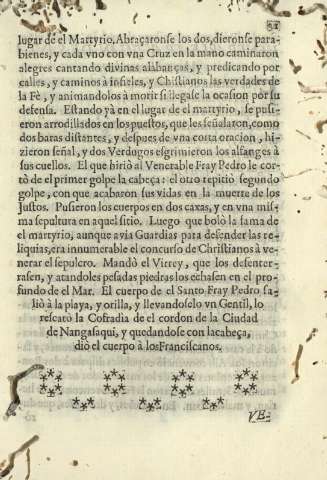 51
lugar de el Martyrio. Abraçaronse los dos, dieronse para-
bienes, y cada vno con vna Cruz en la mano caminaron
alegres cantando divinas alabanças, y predicando por
calles, y caminos à infieles, y Christianos las verdades de
la Fè, y animandolos à morir si llegase la ocasion por su
defensa. Estando yà en el lugar de el martyrio, se pusi-
eron arrodillados en los puestos, que les señalaron, como
dos baras distantes, y despues de vna corta oracion, hi-
zieron señal, y dos Verdugos esgrimieron los alfanges à
sus cuellos. El que hiriò al Venerable Fray Pedro le cor-
tò de el primer golpe la cabeça: el otro repitiò segundo
golpe, con que acabaron sus vidas en la muerte de los
Justos. Pusieron los cuerpos en dos caxas, y en vna mis-
ma sepultura en aquel sitio. Luego que bolò la fama de
el martyrio, aunque avia Guardias para defender las re-
liquias, era innumerable el concurso de Christianos à ve-
nerar el sepulcro. Mandò el Virrey, que los desenter-
rasen, y atandoles pesadas piedras los echasen en el pro-
fundo de el Mar. El cuerpo de el Santo Fray Pedro sa-
liò à la playa, y orilla, y llevandoselo vn Gentil, lo
rescatò la Cofradia de el cordon de la Ciudad
de Nangasaqui, y quedandose con la cabeça,
diò el cuerpo à los Franciscanos.
VE-